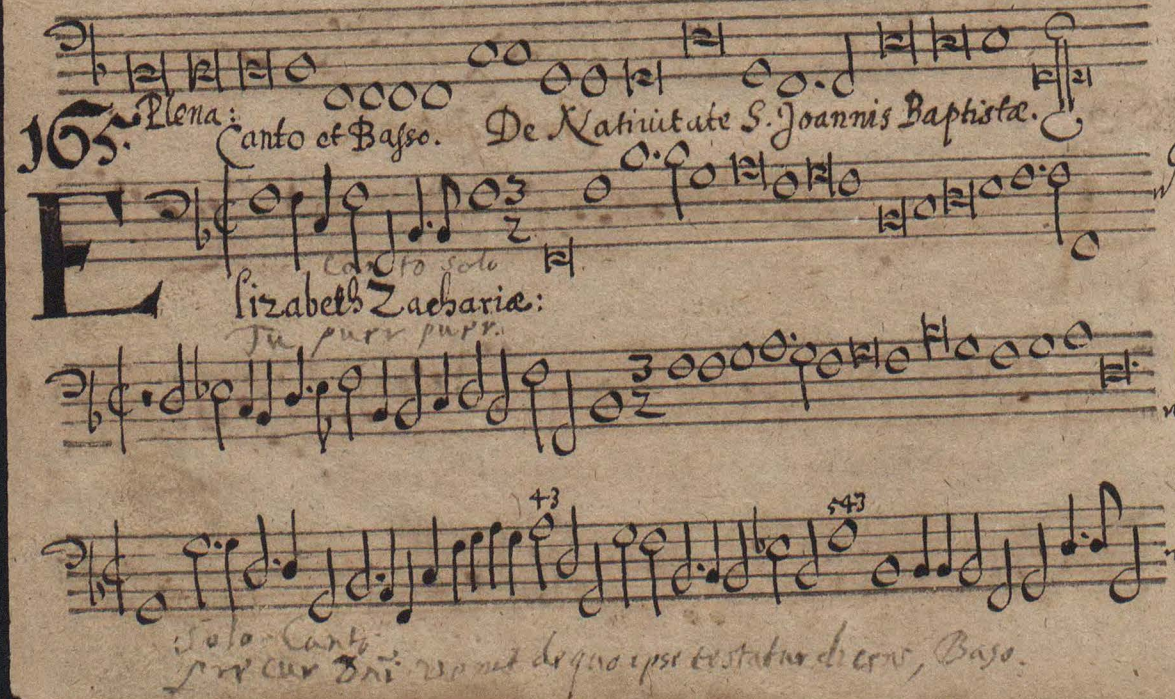 Plena:
165. Canto et Basso. De Natiuitate S. Joannis Baptistæ.
3
2
Canto solo
Elizabeth Zachariæ:
Tu puer puer.
3
2
43
543
Solo Canto
de quo ipse testatur dicens, Baso.